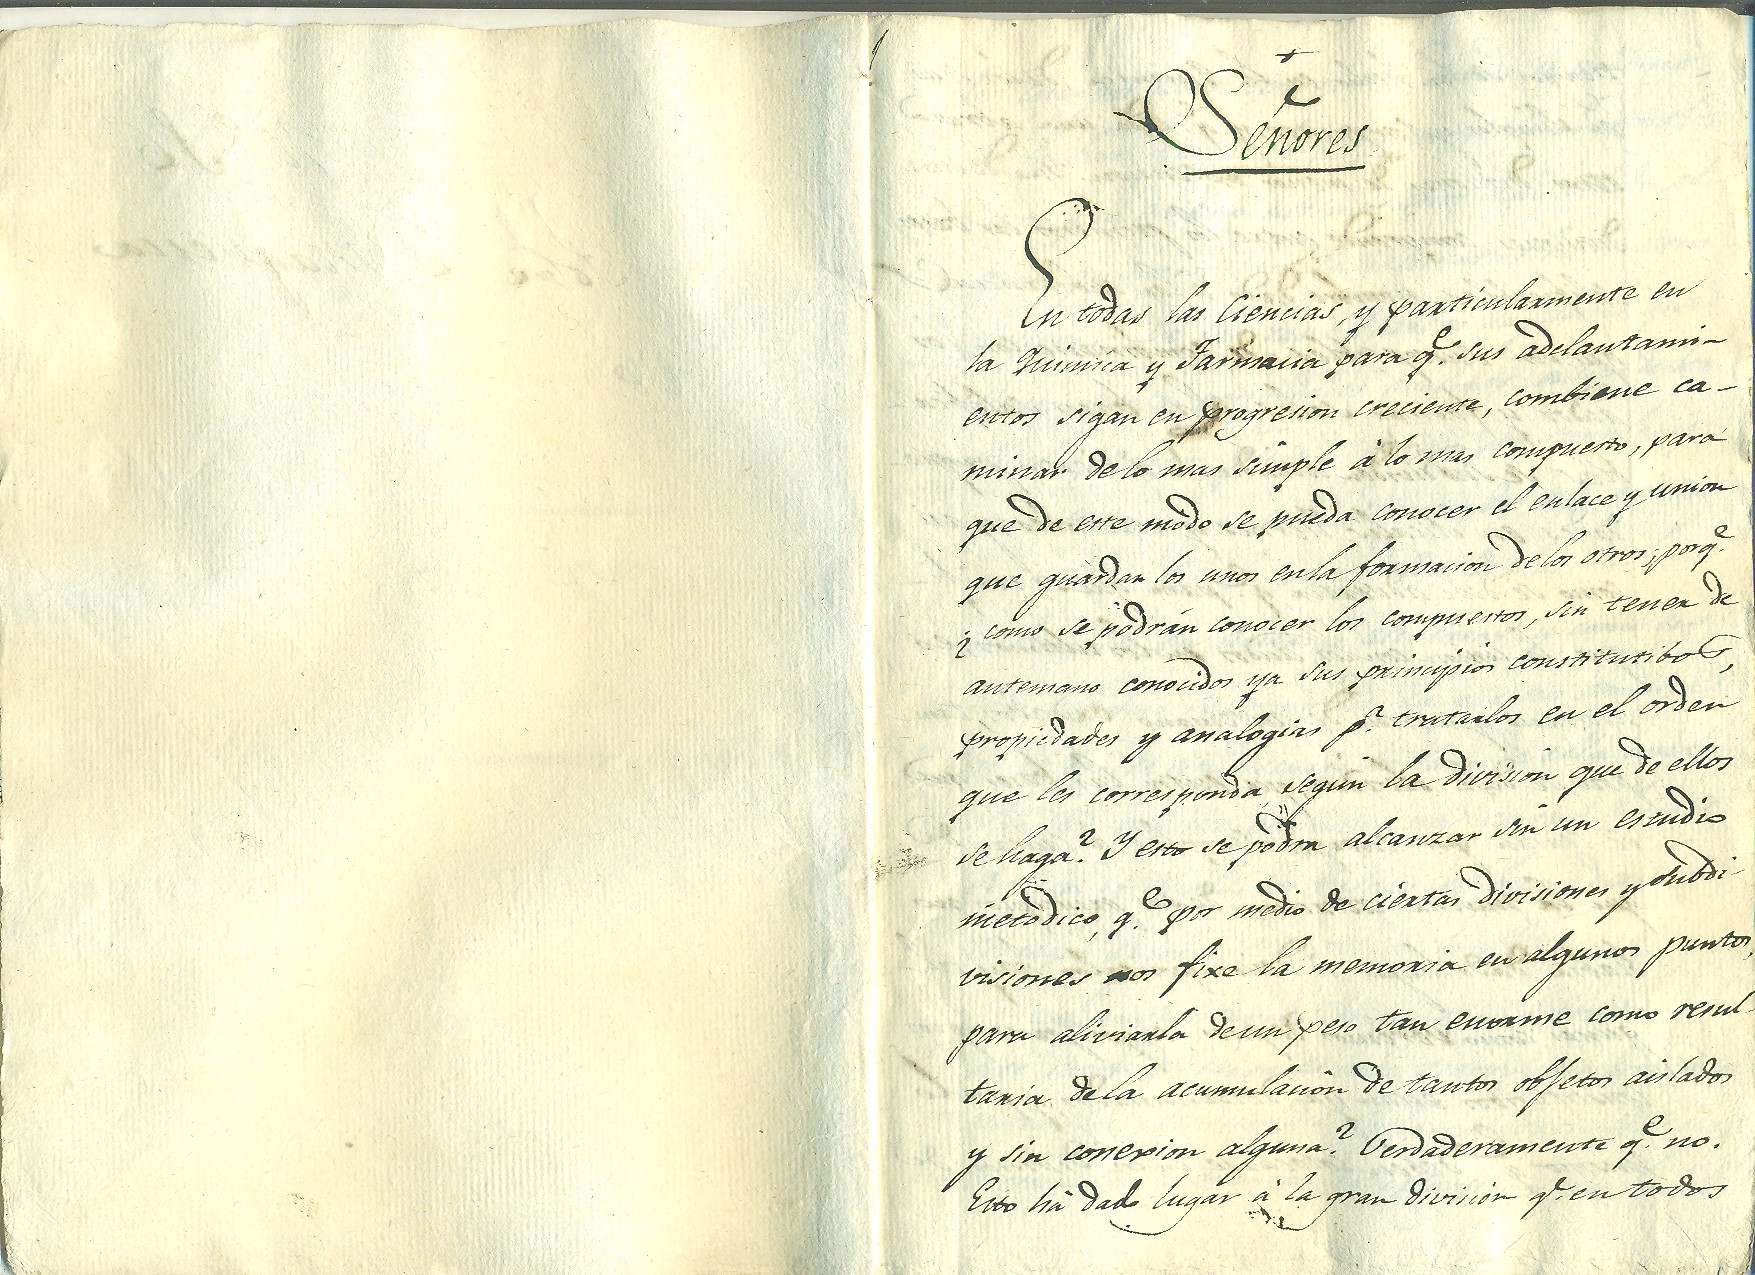 +
Señores
En todas las Ciencias, y particularmente en
la Quimica y Farmacia para q.e sus adelantami-
entos sigan en progresion creciente, combiene ca-
minar de lo mas simple à lo mas compuesto, para
que de este modo se pueda conocer el enlace y union
que guardan los unos en la formacion de los otros; porq.e
¿como se podrán conocer los compuestos, sin tener de
antemano conocidos ya sus principios constitutibos,
propiedades y analogias p.a tratarlos en el orden
que les corresponda según la división que de ellos
se haga? Y esto se podra alcanzar sin un estudio
metodico, q.e por medio de ciertas divisiones y subdi-
visiones nos fixe la memoria en algunos puntos,
para aliviarla de un peso tan enorme como resul-
taria de la acumulación de tantos objetos aislados
y sin conexion alguna? Verdaderamente q.e no.
Esto há dado lugar à la gran división q.e en todos